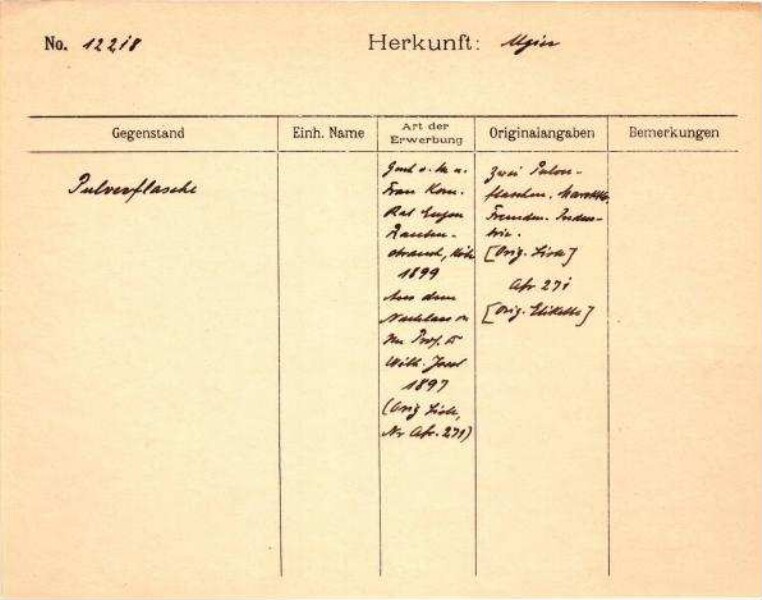 No. 12218
Herkunft:
Gegenstand
Einh. Name
Art der
Erwerbung
Originalangaben
Bemerkungen
Pulverflasche
Frau Kom.
Rat Eugen
Rauten-
strauch,
1899
Aus dem
Nachlass
Prof. Dr
Wilh. Joest
1897
(Orig Liste,
Nr Afr. 271)
Zwei Pulver-
flaschen,
Fremden-Indus-
trie.
[Orig. Liste]
Afr 271
[Orig. Etikette]